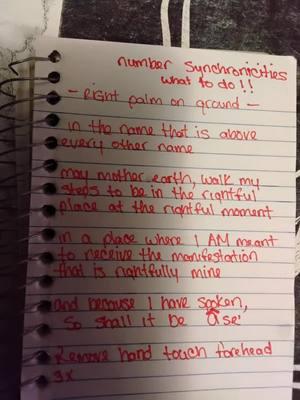 number Synchronicities
what to do!!
- Right palm on ground -
in the name that is above
every other name
may mother earth, walk my
steps to be in the rightful
place at the rightful moment
in a place where I AM meant
to receive the manifestation
that is rightfully mine
and because I have spoken,
so shall it be
Remove hand touch forehead
3x